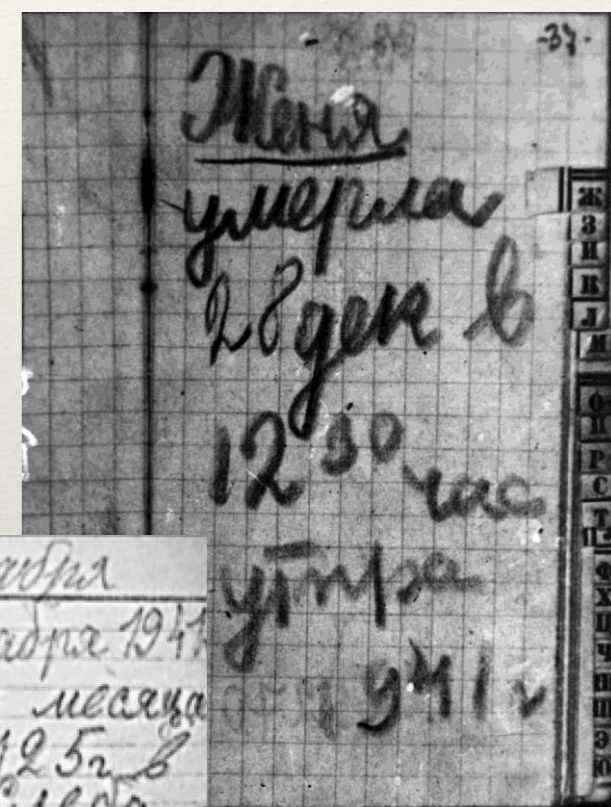 -37-
Женя
умерла
28 дек в
12 30 час
утра
1941 г
Ж
З
И
К
Л
М
О
П
Р
С
Т
Ф
Х
Ц
Ч
Ш
Щ
Э
Ю
абря
абря 1941
месяца
125г в